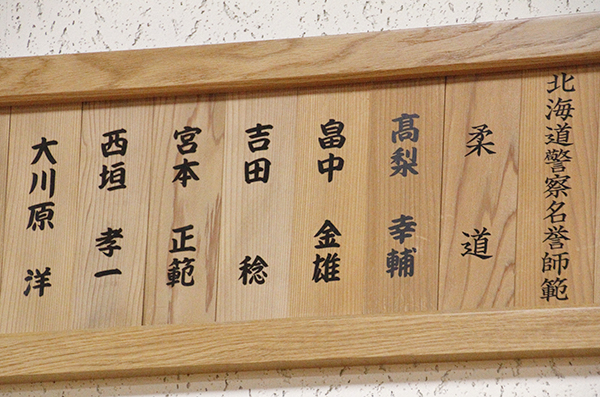 北海道警察名誉師範
柔道
高梨 幸輔
畠中 金雄
吉田 稔
宮本 正範
西垣 孝一
大川原 洋